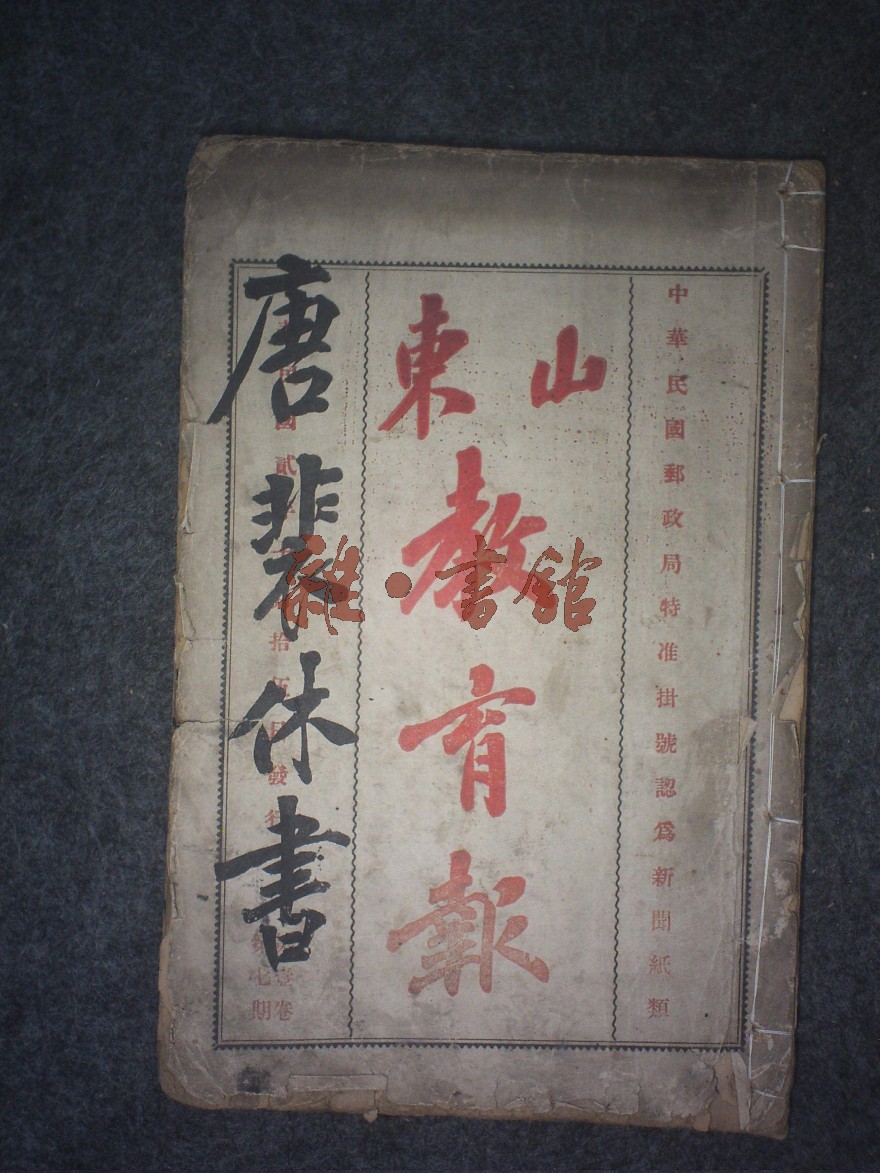 中華民國郵政局特准掛號認爲新聞紙類
山東
教育報
國貳拾伍日發行
壹卷
七期
唐裴休書
雜·書館